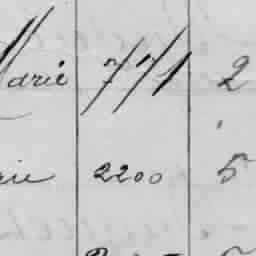 Marie 771 2
rie 2200 5